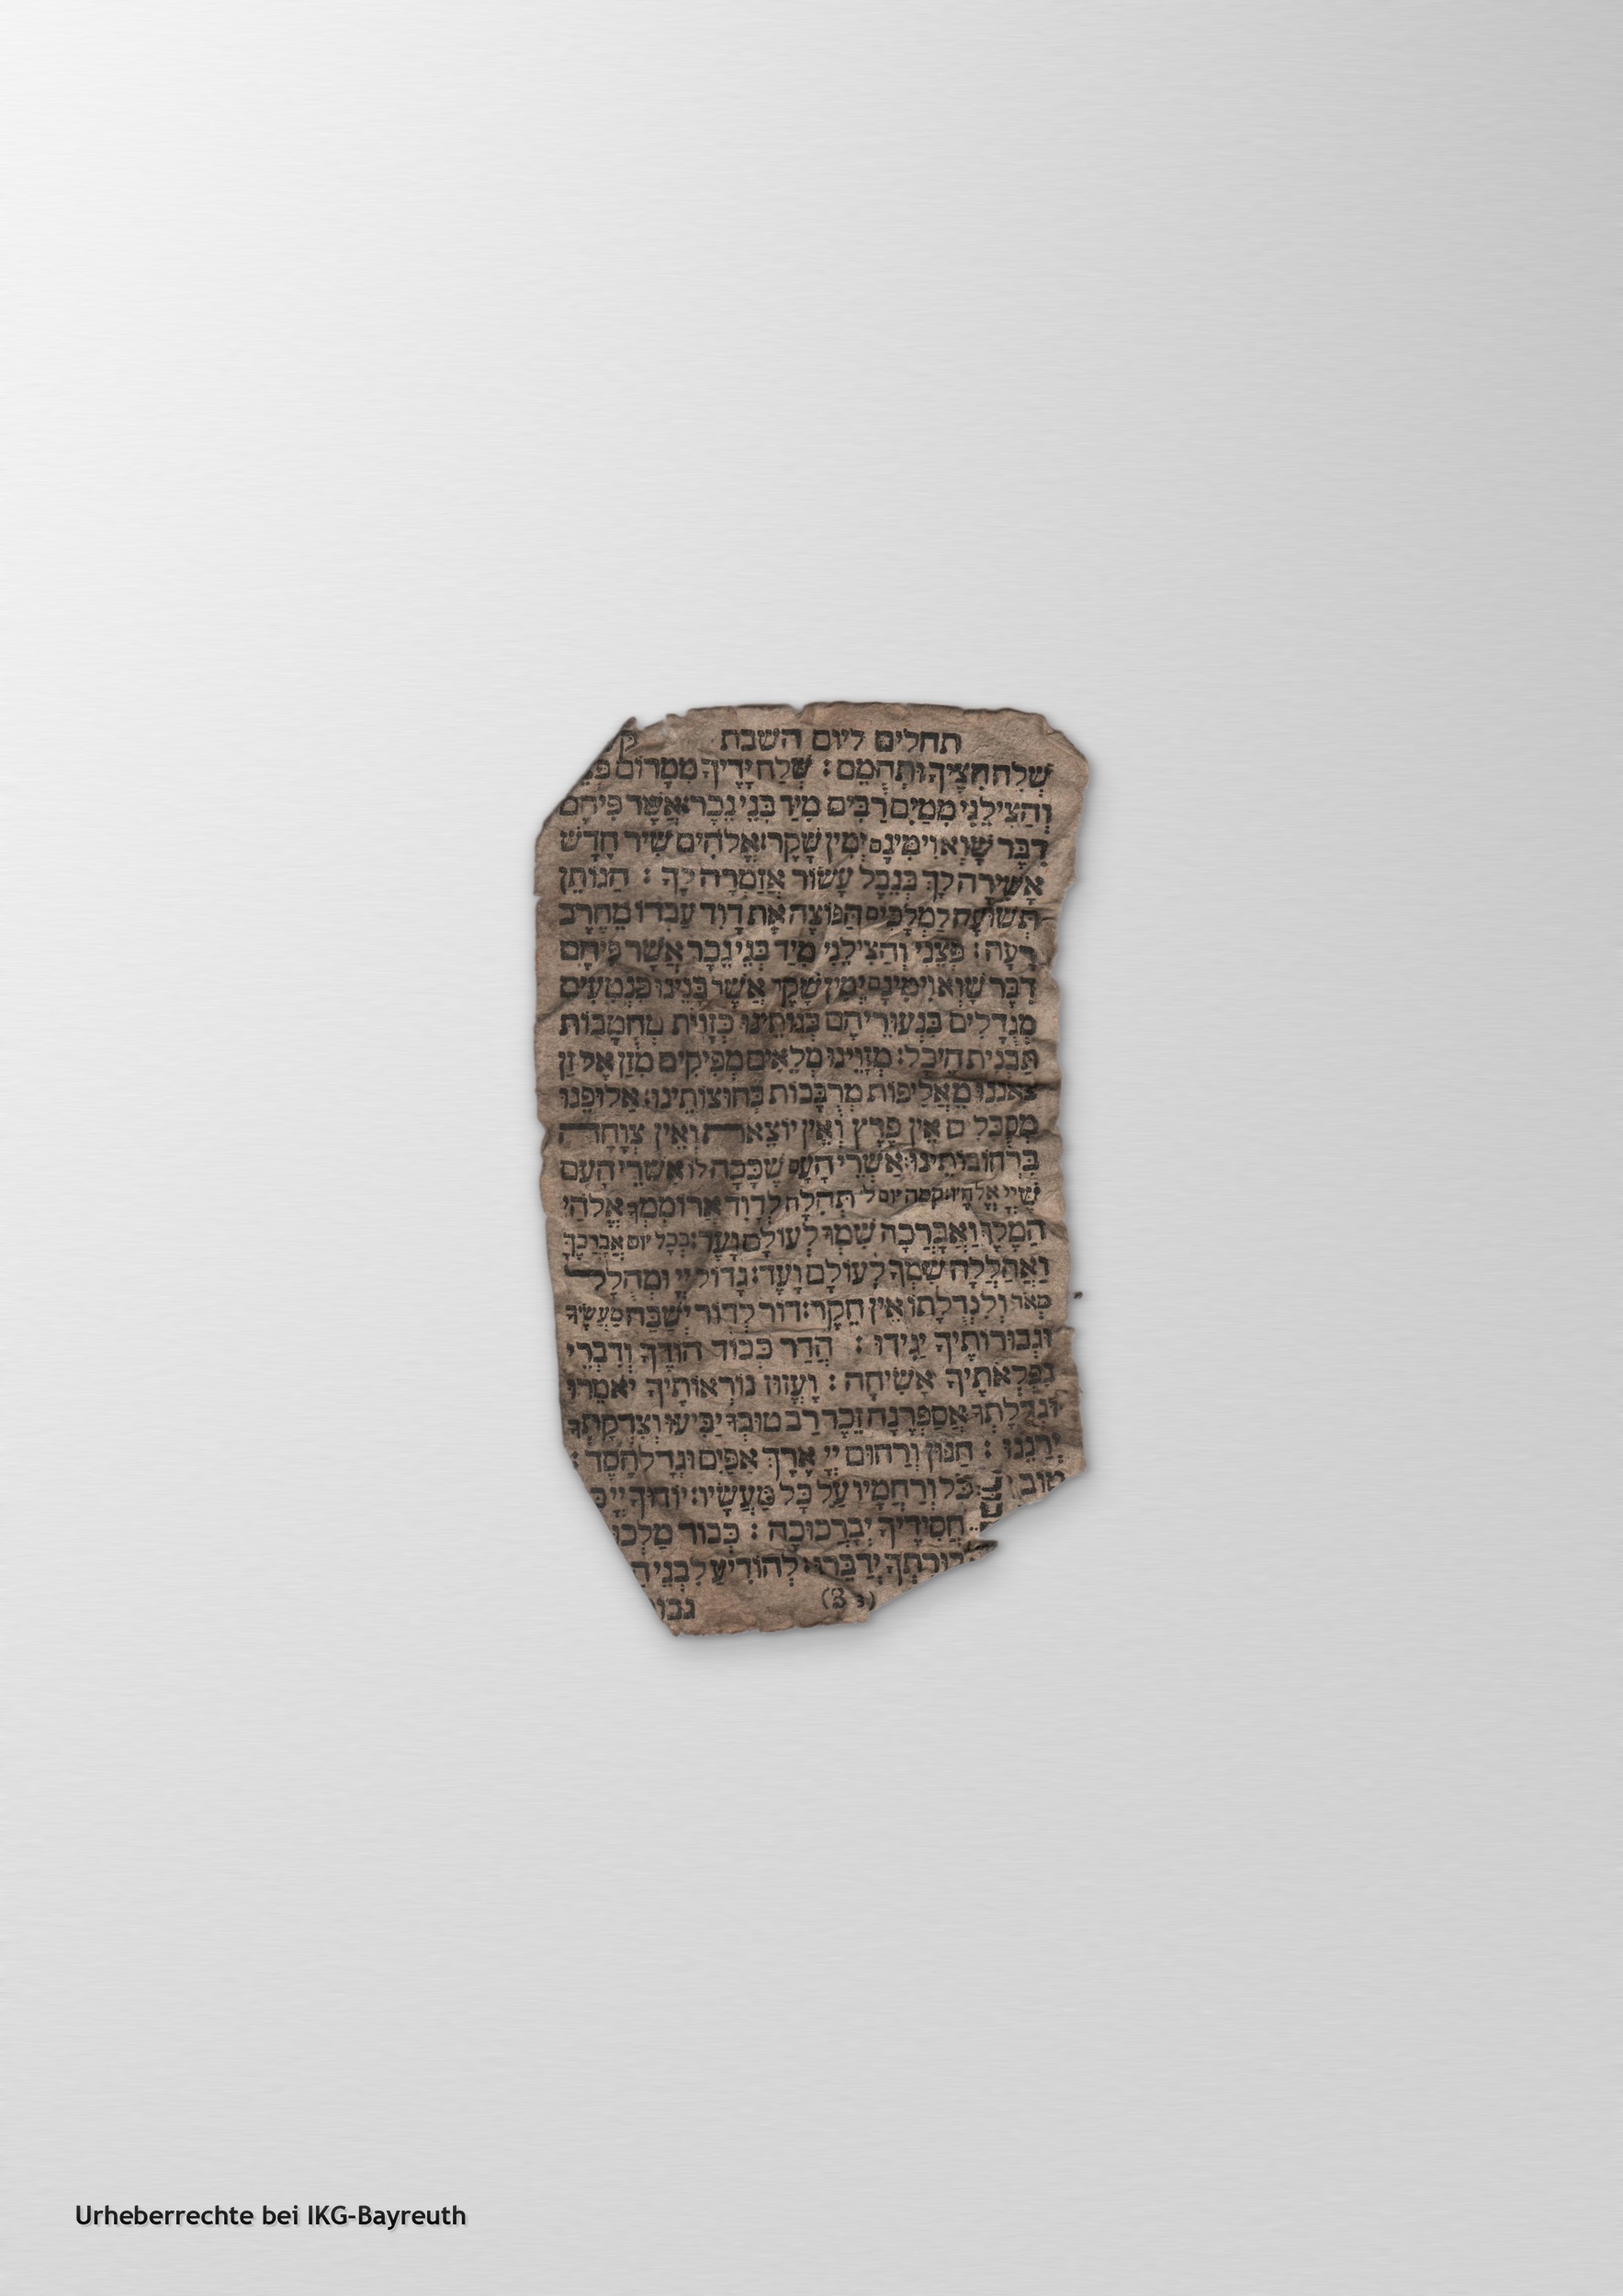 תהלים ליום השבת
שְׁלַח חִצֶּיךָ וּתְהֻמֵּם : שְׁלַח יָדֶיךָ מִמָּרוֹם
וְהַצִּילֵנִי מִמַּיִם רַבִּים מִיַּד בְּנֵי נֵכָר אֲשֶׁר פִּיהֶם
דִּבֶּר שָׁוְא וִימִינָם יְמִין שָׁקֶר אֱלֹהִים שִׁיר חָדָשׁ
אָשִׁירָה לָּךְ בְּנֵבֶל עָשׂוֹר אֲזַמְּרָה לָּךְ : הַנּוֹתֵן
תְּשׁוּעָה לַמְּלָכִים הַפּוֹצֶה אֶת דָּוִד עַבְדּוֹ מֵחֶרֶב
רָעָה : פְּצֵנִי וְהַצִּילֵנִי מִיַּד בְּנֵי נֵכָר אֲשֶׁר פִּיהֶם
דִּבֶּר שָׁוְא וִימִינָם יְמִין שָׁקֶר אֲשֶׁר בָּנֵינוּ כִּנְטִעִים
מְגֻדָּלִים בִּנְעוּרֵיהֶם בְּנוֹתֵינוּ כְזָוִיֹּת מְחֻטָּבוֹת
תַּבְנִית הֵיכָל : מְזָוֵינוּ מְלֵאִים מְפִיקִים מִזַּן אֶל זַן
צֹאנֵנוּ מַאֲלִיפוֹת מְרֻבָּבוֹת בְּחוּצוֹתֵינוּ : אַלּוּפֵנוּ
מְסֻבָּלִים אֵין פֶּרֶץ וְאֵין יוֹצֵאת וְאֵין צְוָחָה
בִּרְחוֹבוֹתֵינוּ : אַשְׁרֵי הָעָם שֶׁכָּכָה לּוֹ אַשְׁרֵי הָעָם
שֶׁיְיָ אֱלֹהָיו : קמה יום ל' תְּהִלָּה לְדָוִד אֲרוֹמִמְךָ אֱלֹהַי
הַמֶּלֶךְ וַאֲבָרְכָה שִׁמְךָ לְעוֹלָם וָעֶד : בְּכָל יוֹם אֲבָרְכֶךָּ
וַאֲהַלְלָה שִׁמְךָ לְעוֹלָם וָעֶד : גָּדוֹל יְיָ וּמְהֻלָּל
מְאֹד וְלִגְדֻלָּתוֹ אֵין חֵקֶר : דּוֹר לְדוֹר יְשַׁבַּח מַעֲשֶׂיךָ
וּגְבוּרוֹתֶיךָ יַגִּידוּ : הֲדַר כְּבוֹד הוֹדֶךָ וְדִבְרֵי
נִפְלְאֹתֶיךָ אָשִׂיחָה : וֶעֱזוּז נוֹרְאוֹתֶיךָ יֹאמֵרוּ
וּגְדֻלָּתְךָ אֲסַפְּרֶנָּה זֵכֶר רַב טוּבְךָ יַבִּיעוּ וְצִדְקָתְךָ
יְרַנֵּנוּ : חַנּוּן וְרַחוּם יְיָ אֶרֶךְ אַפַּיִם וּגְדָל חָסֶד :
טוֹב כֹּל וְרַחֲמָיו עַל כָּל מַעֲשָׂיו : יוֹדוּךָ יְיָ
חֲסִידֶיךָ יְבָרְכוּכָה : כְּבוֹד
יְדַבֵּרוּ : לְהוֹדִיעַ לִבְנֵי
Urheberrechte bei IKG-Bayreuth